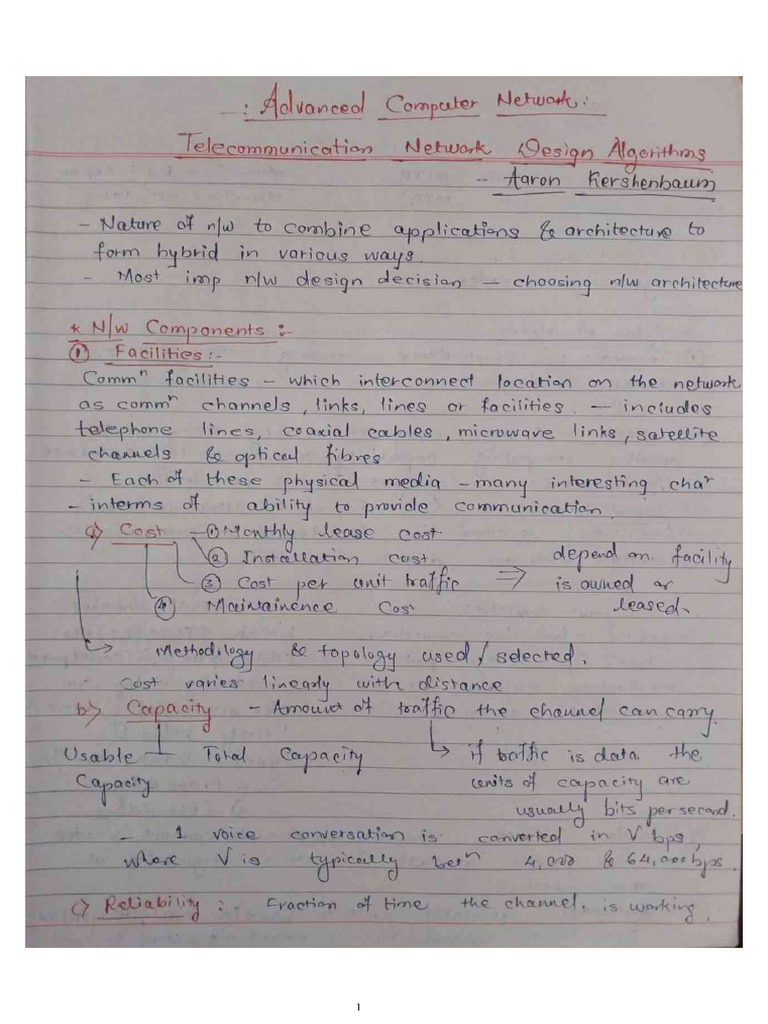 -: Advanced Computer Network:-
Telecommunication Network Design Algorithms
- Aaron Kershenbaum
- Nature of n/w to combine applications & architecture to
form hybrid in various ways.
- Most imp n/w design decision - choosing n/w architecture
* N/w Components :-
① Facilities :-
Commⁿ facilities - which interconnect location on the network
as commⁿ channels, links, lines or facilities. - includes
telephone lines, coaxial cables, microwave links, satellite
channels & optical fibres
- Each of these physical media - many interesting chaʳ
- interms of ability to provide communication.
a) Cost - ① Monthly lease cost
② Installation cost
③ Cost per unit traffic ⇒ depend on facility
is owned or
④ Maintainence Cost leased.
→ Methodology & topology used / selected.
- Cost varies linearly with distance
b) Capacity - Amount of traffic the channel can carry.
Usable Total Capacity → if traffic is data the
Capacity units of capacity are
usually bits per second.
- 1 voice conversation is converted in V bps,
where V is typically betⁿ 4,000 & 64,000 bps.
c) Reliability :- Fraction of time the channel is working.
1